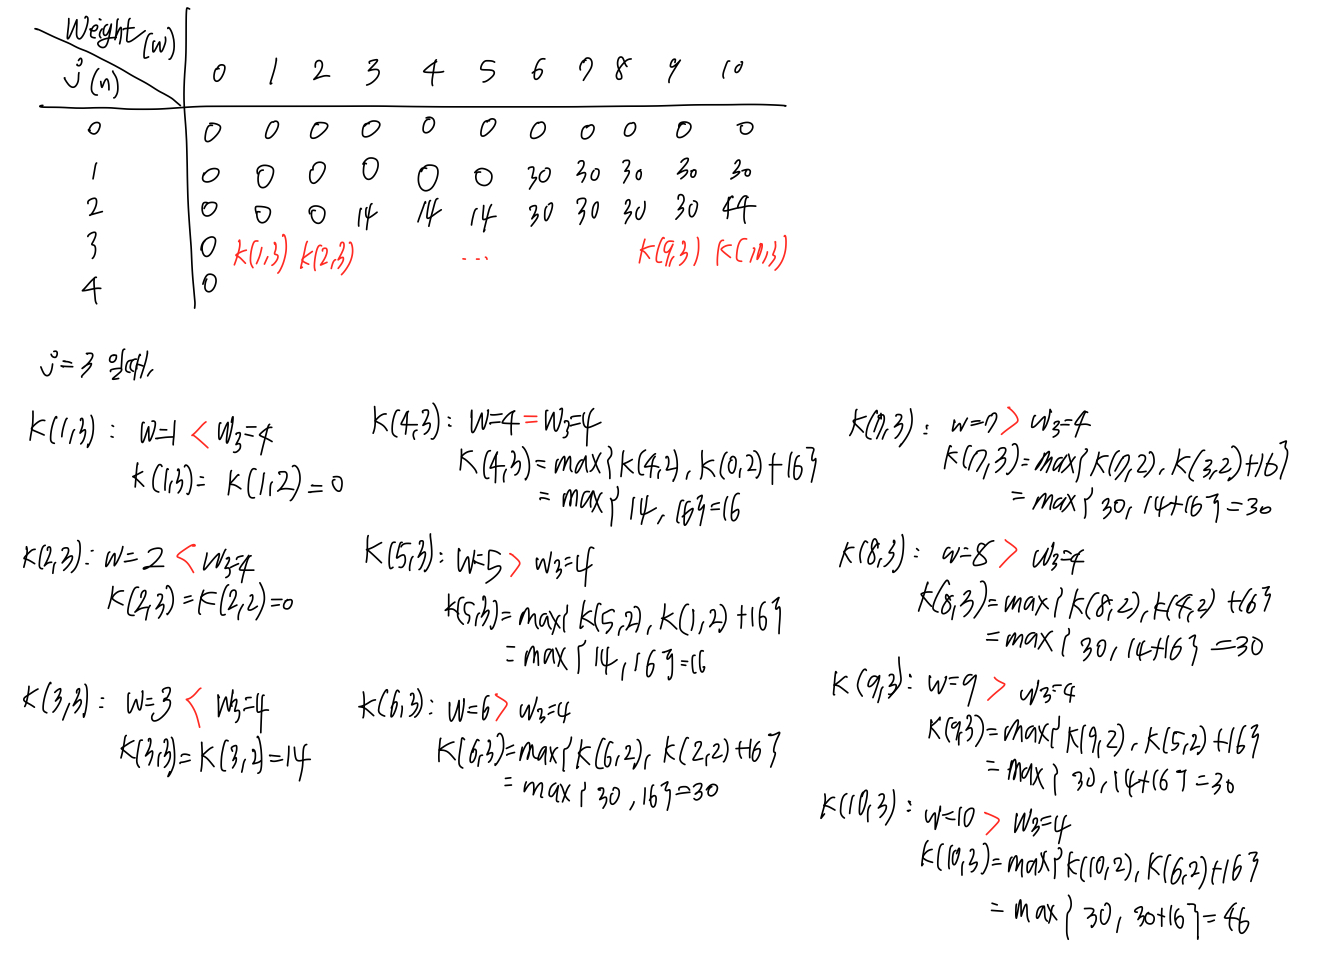 Weight (w)
j (n)
0 1 2 3 4 5 6 7 8 9 10
0 0 0 0 0 0 0 0 0 0 0 0
1 0 0 0 0 0 0 30 30 30 30 30
2 0 0 0 14 14 14 30 30 30 30 44
3 0 K(1,3) K(2,3) ... K(9,3) K(10,3)
4 0
j=3 일때,
K(1,3) : w=1 < w₃=4
K(1,3)= K(1,2)=0
K(2,3): w=2 < w₃=4
K(2,3)=K(2,2)=0
K(3,3): w=3 < w₃=4
K(3,3)=K(3,2)=14
K(4,3): w=4 = w₃=4
K(4,3)=max{K(4,2), K(0,2)+16}
= max{14, 16}=16
K(5,3): w=5 > w₃=4
K(5,3)=max{K(5,2), K(1,2)+16}
= max{14, 16}=16
K(6,3): w=6 > w₃=4
K(6,3)=max{K(6,2), K(2,2)+16}
= max{30, 16}=30
K(7,3): w=7 > w₃=4
K(7,3)=max{K(7,2), K(3,2)+16}
= max{30, 14+16}=30
K(8,3): w=8 > w₃=4
K(8,3)=max{K(8,2), K(4,2)+16}
= max{30, 14+16}=30
K(9,3): w=9 > w₃=4
K(9,3)=max{K(9,2), K(5,2)+16}
= max{30, 14+16}=30
K(10,3): w=10 > w₃=4
K(10,3)=max{K(10,2), K(6,2)+16}
= max{30, 30+16}=46